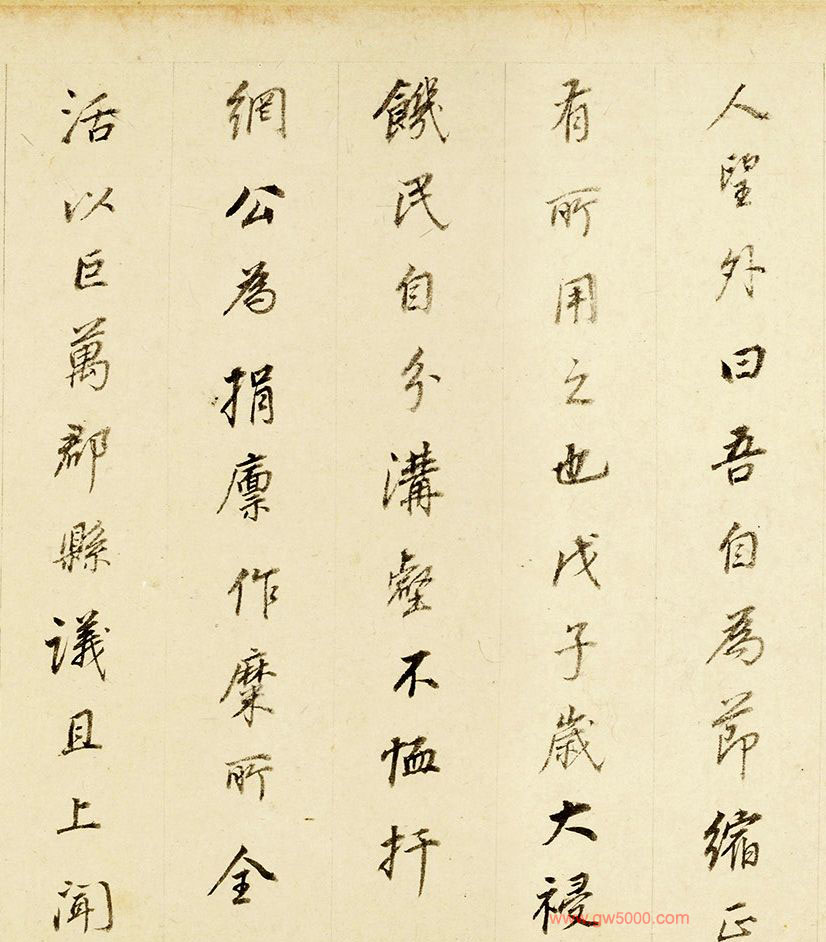 人望外曰吾自為節縮正
有所用之也戊子歲大祲
饑民自分溝壑不恤扞
網公為捐廩作糜所全
活以巨萬郡縣議且上聞
www.gw5000.com